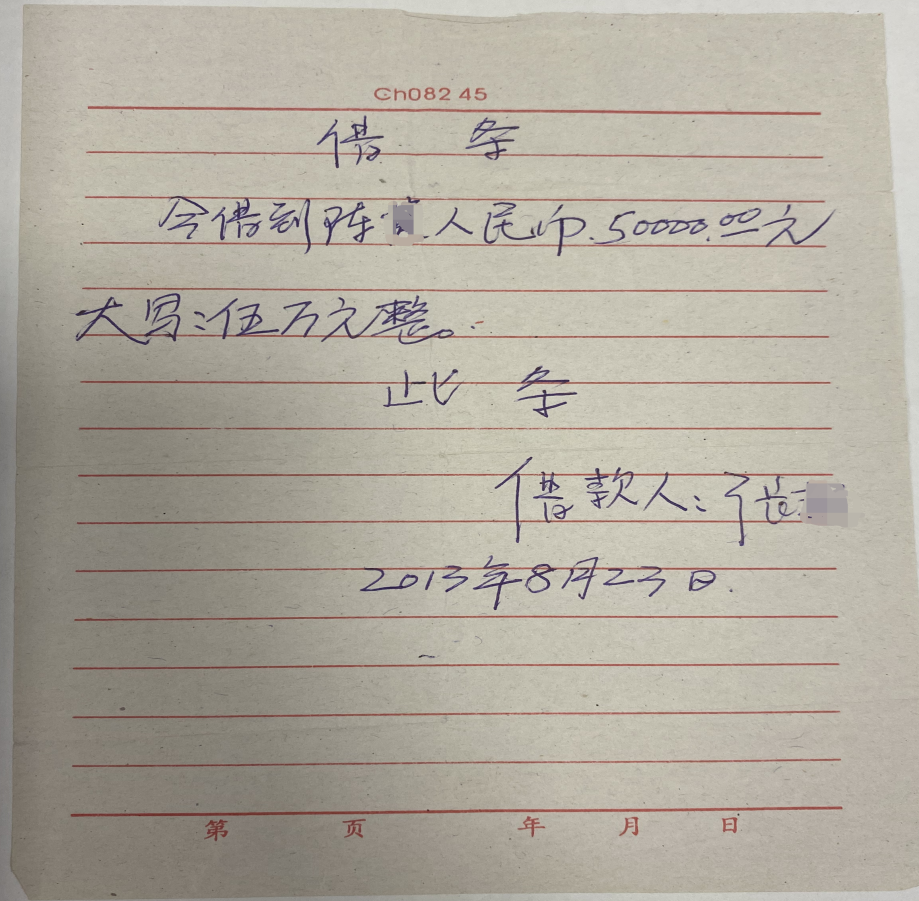 Ch082 45
借 条
今借到陈 人民币.50000.00元
大写:伍万元整。
此 条
借款人:张
2013年8月23日.
第 页 年 月 日